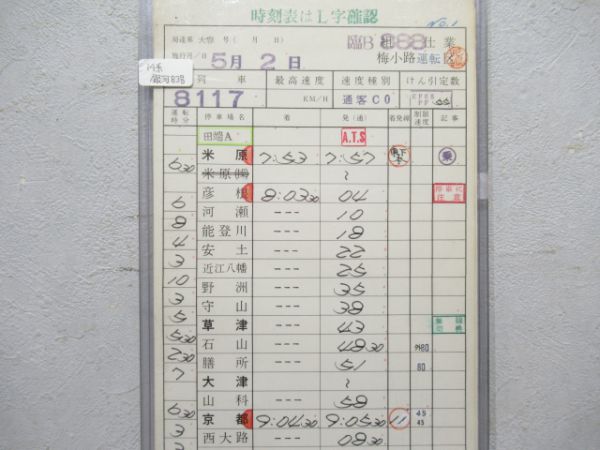 時刻表はL字確認
No.1
局達乗 大鉄 号( 月 日)
臨B 組 仕業
施行月/日 5月2日
梅小路運転区
14系
銀河83号
列車 最高速度 速度種別 けん引定数
8117 KM/H 通客C0 EF65 PF
運転時分 停車場名 着 発(通) 着発線 制限速度 記事
田端A A.T.S
米原 7=53 7=57 乗
630 米原(操) 〜
彦根 8=0330 04 停車駅注意
6 河瀬 --- 10
8 能登川 --- 18
4 安土 --- 22
3 近江八幡 --- 25
10 野洲 --- 35
3 守山 --- 38
5 草津 --- 43
530 石山 --- 4830 80
230 膳所 --- 51 80
7 大津 〜
山科 --- 58
630 京都 9=0430 9=0530 11 45 45
3 西大路 --- 0830
3